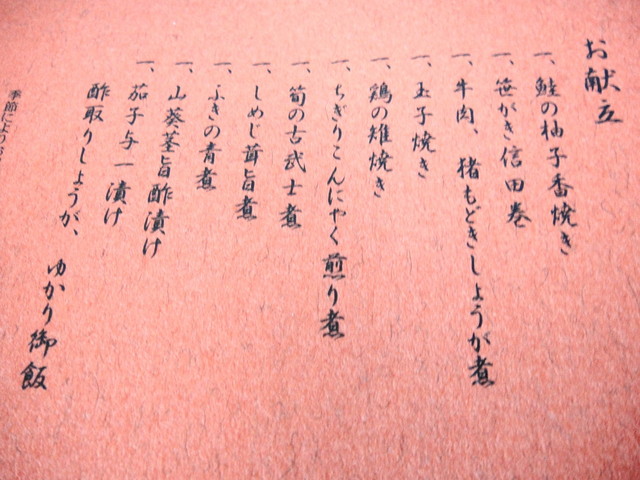 お献立
一、鮭の柚子香焼き
一、笹がき信田巻
一、牛肉、猪もどきしょうが煮
一、玉子焼き
一、鶏の雉焼き
一、ちぎりこんにゃく煎り煮
一、筍の古武士煮
一、しめじ茸旨煮
一、ふきの青煮
一、山葵茎旨酢漬け
一、茄子与一漬け
酢取りしょうが、ゆかり御飯
季節によ